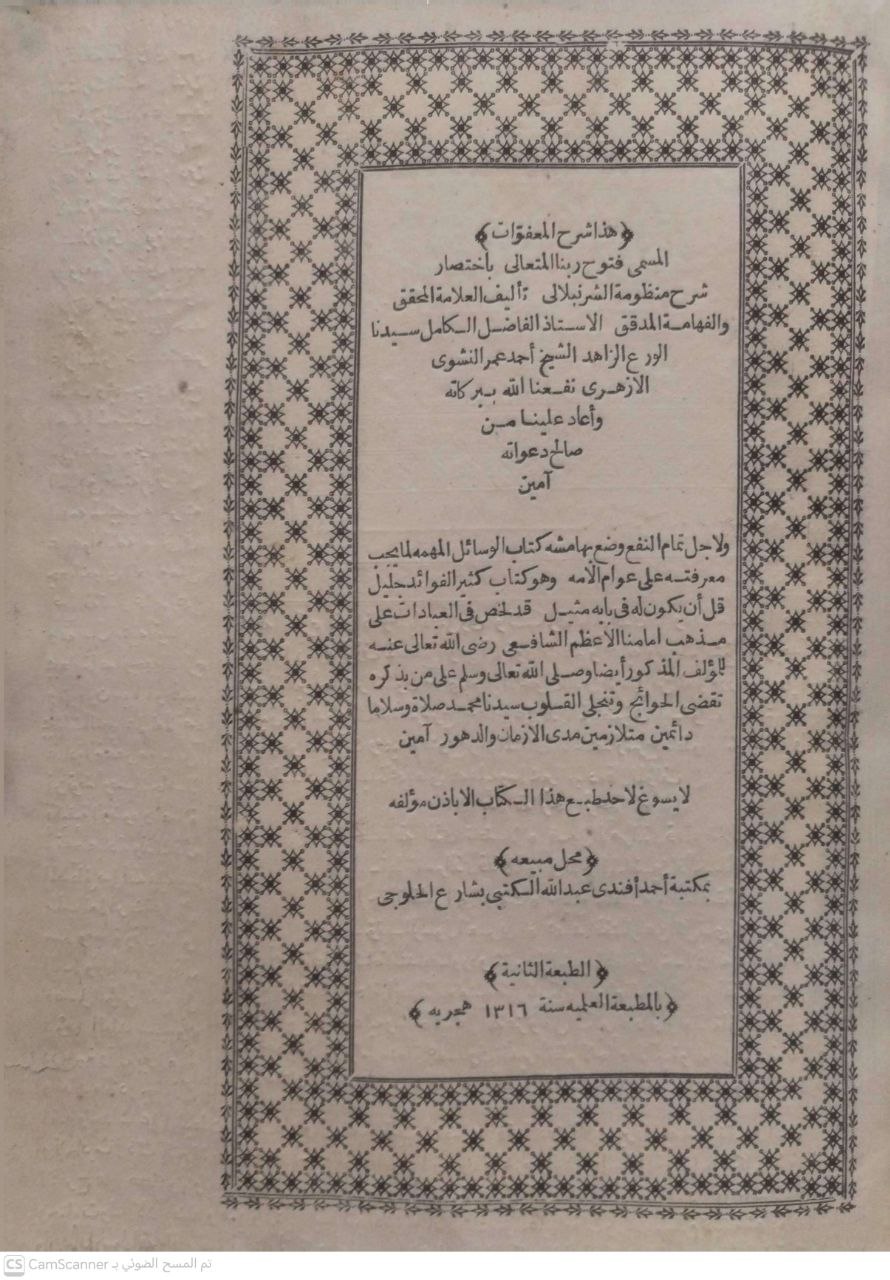 ﴿هذا شرح المعفوّات﴾
المسمى فتوح ربنا المتعالى باختصار
شرح منظومة الشرنبلالى تأليف العلامة المحقق
والفهامة المدقق الاستاذ الفاضل الكامل سيدنا
الورع الزاهد الشيخ أحمد عمر النشوى
الازهرى نفعنا الله ببركاته
وأعاد علينا من
صالح دعواته
آمين
ولاجل تمام النفع وضع بهامشه كتاب الوسائل المهمه لما يجب
معرفته على عوام الامه وهو كتاب كثير الفوائد جليل
قل أن يكون له فى بابه مثيل قد لخص فى العبادات على
مذهب امامنا الاعظم الشافعى رضى الله تعالى عنه
للمؤلف المذكور أيضا وصلى الله تعالى وسلم على من بذكره
تقضى الحوائج وتنجلى القلوب سيدنا محمد صلاة وسلاما
دائمين متلازمين مدى الازمان والدهور آمين
لا يسوغ لاحد طبع هذا الكتاب الا باذن مؤلفه
﴿محل مبيعه﴾
بمكتبة أحمد أفندى عبد الله الكتبى بشارع الحلوجى
﴿الطبعة الثانية﴾
﴿بالمطبعة العلميه سنة ١٣١٦ هجريه﴾
CS CamScanner تم المسح الضوئي بـ